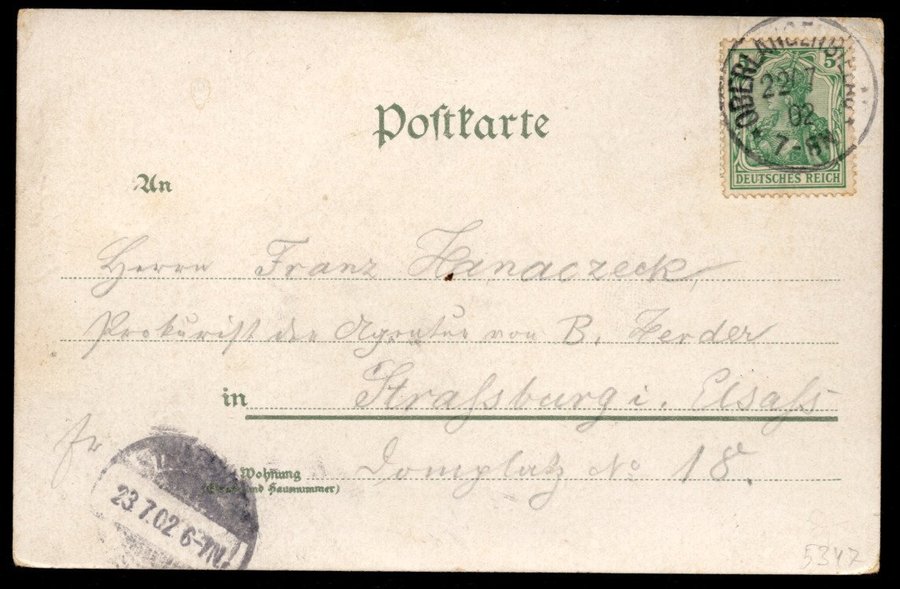 Postkarte
OBERLANGENBIELAU
22/7
02
7-8N
5
DEUTSCHES REICH
An
Herrn Franz Hanaczeck
Prokurist der Agentur von B. Herder
in Strassburg i. Elsass
Wohnung Domplatz No 18.
und Hausnummer)
Fr
23.7.02 6-7N.
5347